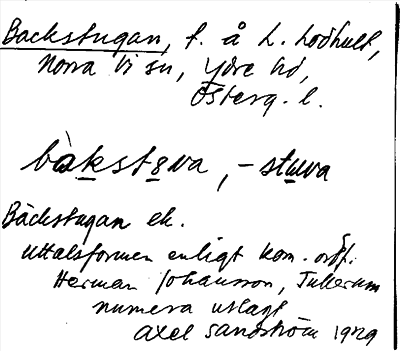 Backstugan, t. å L. Lodhult,
Norra Vi sn, Ydre hd,
Österg. l.
bàkstuva, -stuva
Bàckstugan ek.
Uttalsformen enligt kom. ordf.
Herman Johansson, Tullerum
numera utlagt
Axel Sandström 1929